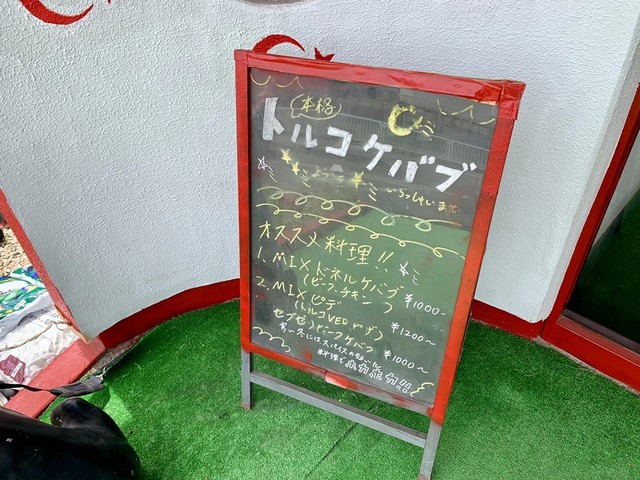 本格
トルコケバブ
ようこそ
いらっしゃいませ
オススメ料理!!
1. MIXドネルケバブ
(ビーフ、チキン) ¥1000~
2. MIXピデ
(トルコ ¥1200~
ケバブ ¥1000~
スパイスの
料理